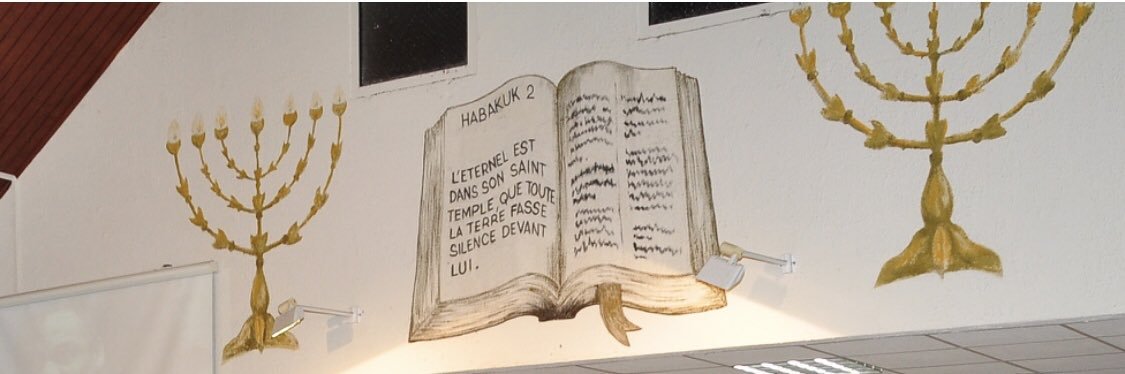 HABAKUK 2
L'ETERNEL EST
DANS SON SAINT
TEMPLE, QUE TOUTE
LA TERRE FASSE
SILENCE DEVANT
LUI.